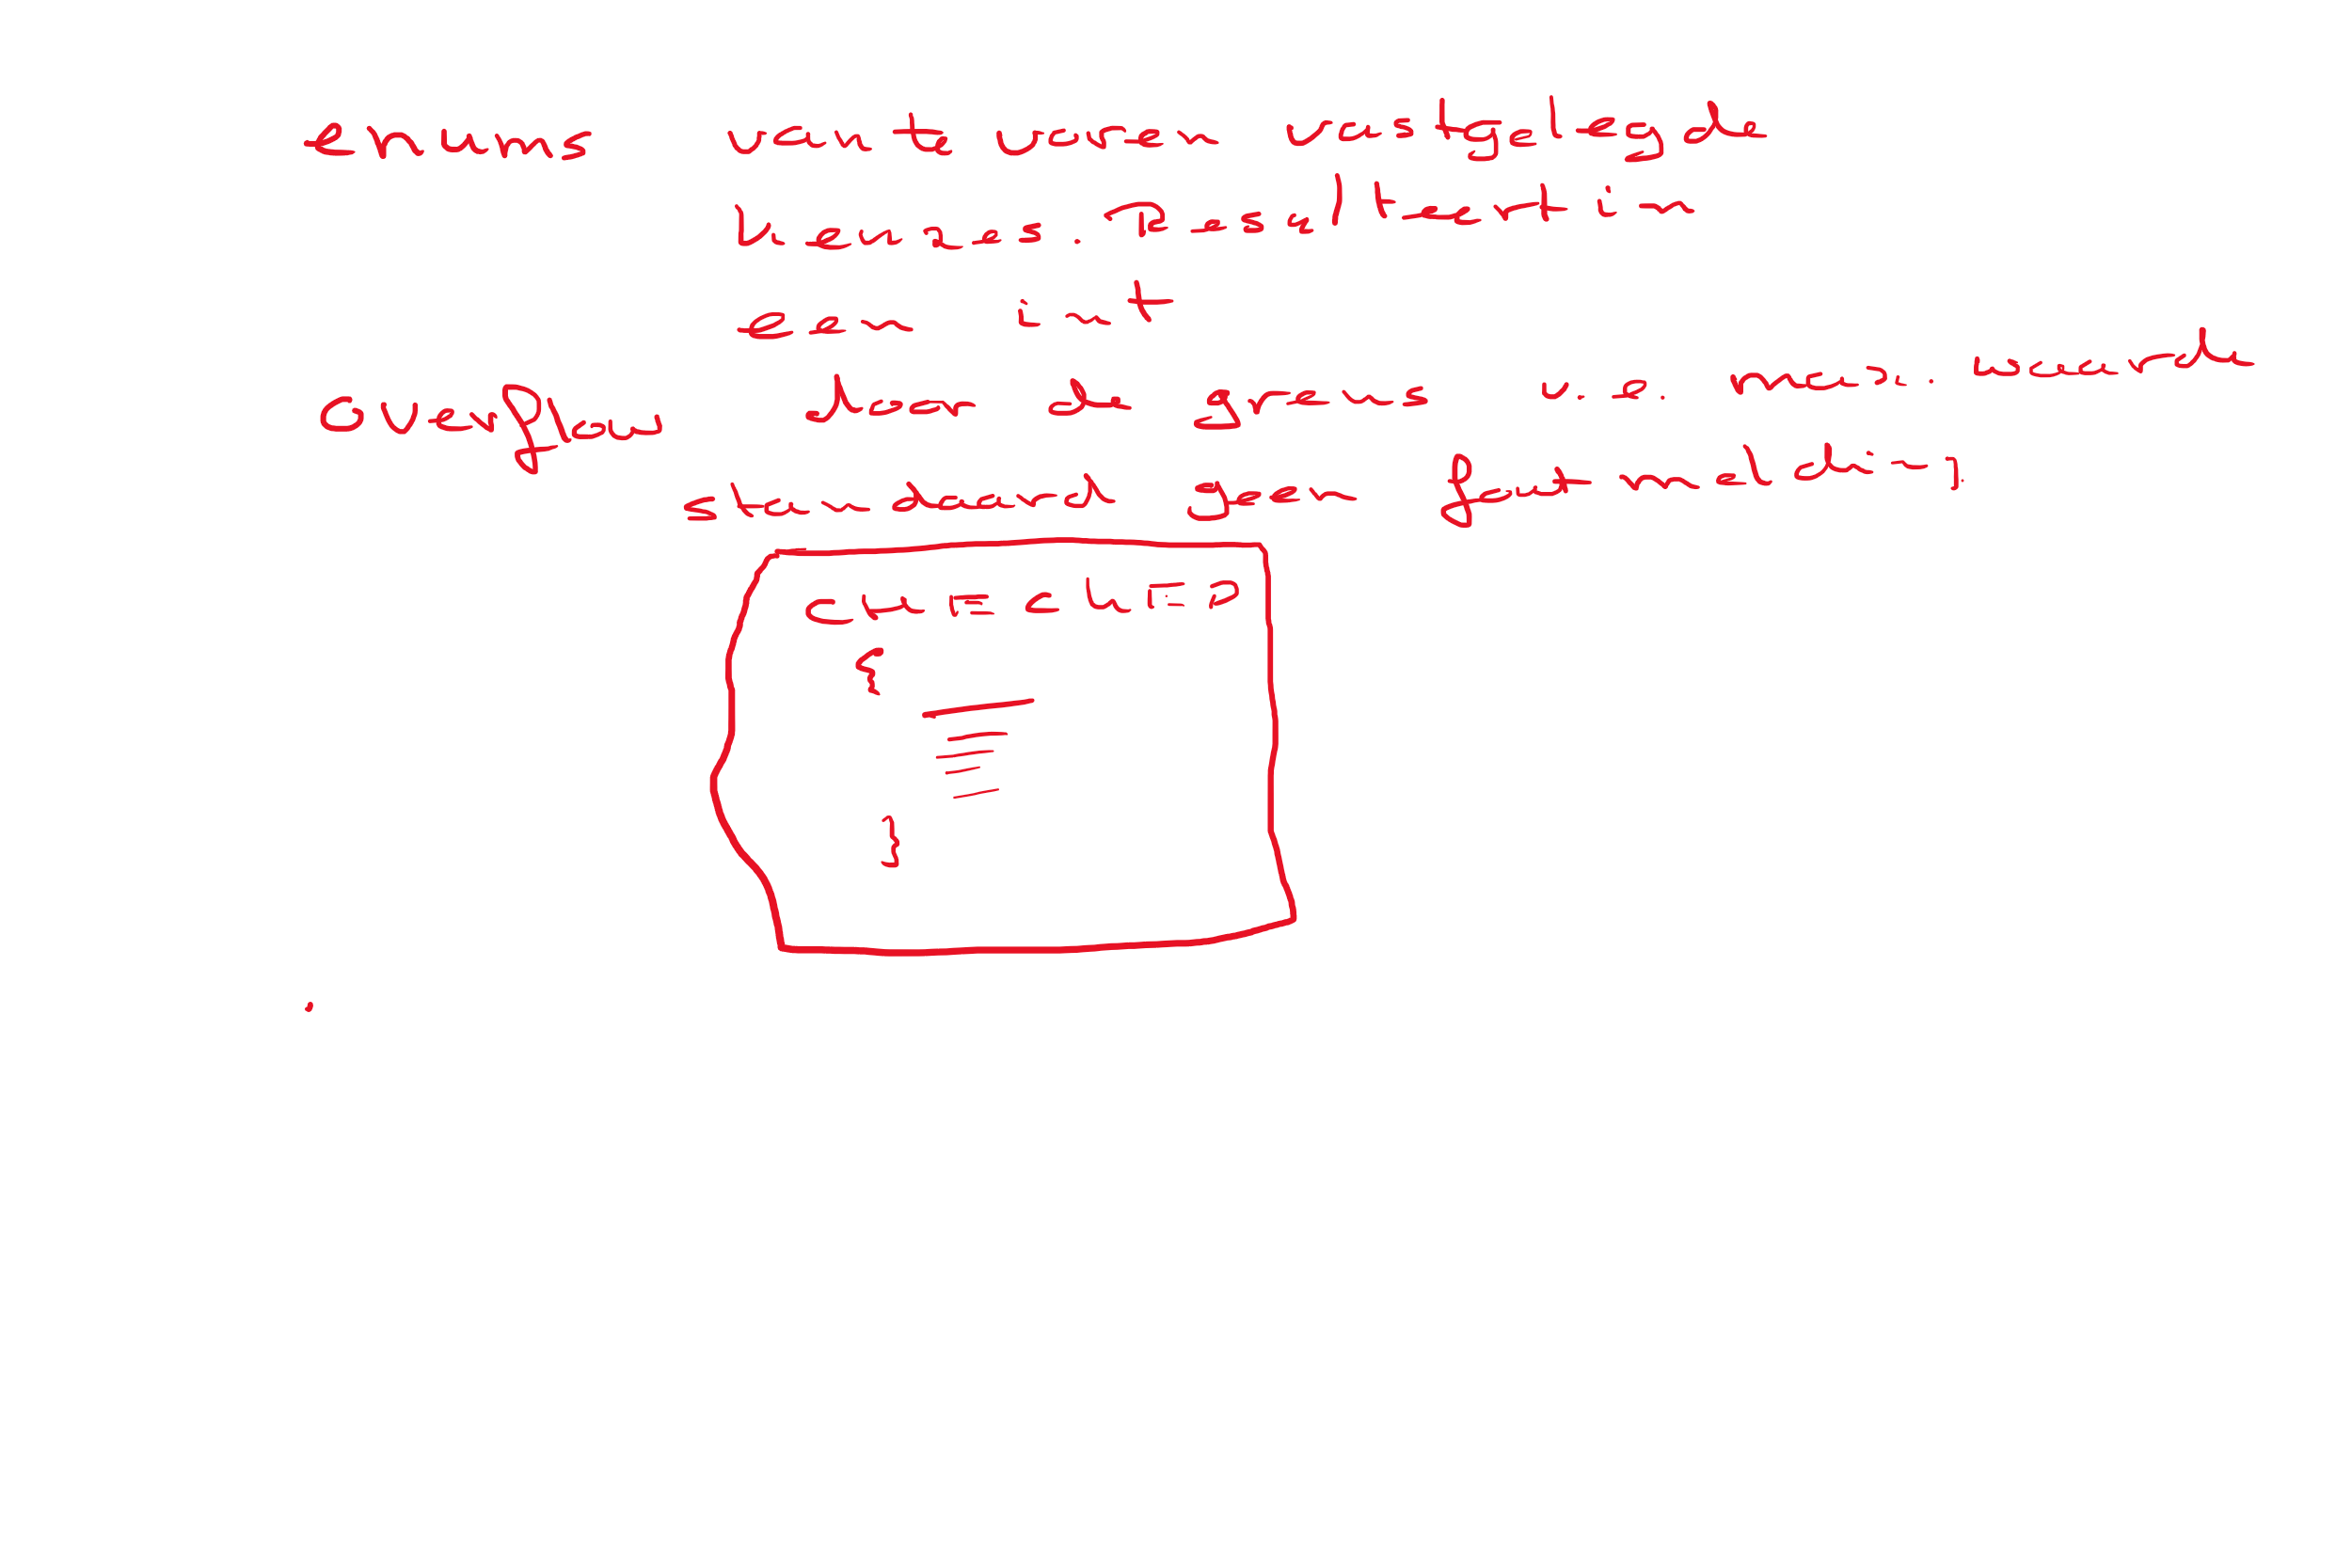 enums vaste waarden vastgelegde
keuzes. Resulteert in
een int
Overflow door de grens v.e. max. waarde
standaard geen foutmelding.
CHECKED
{
}